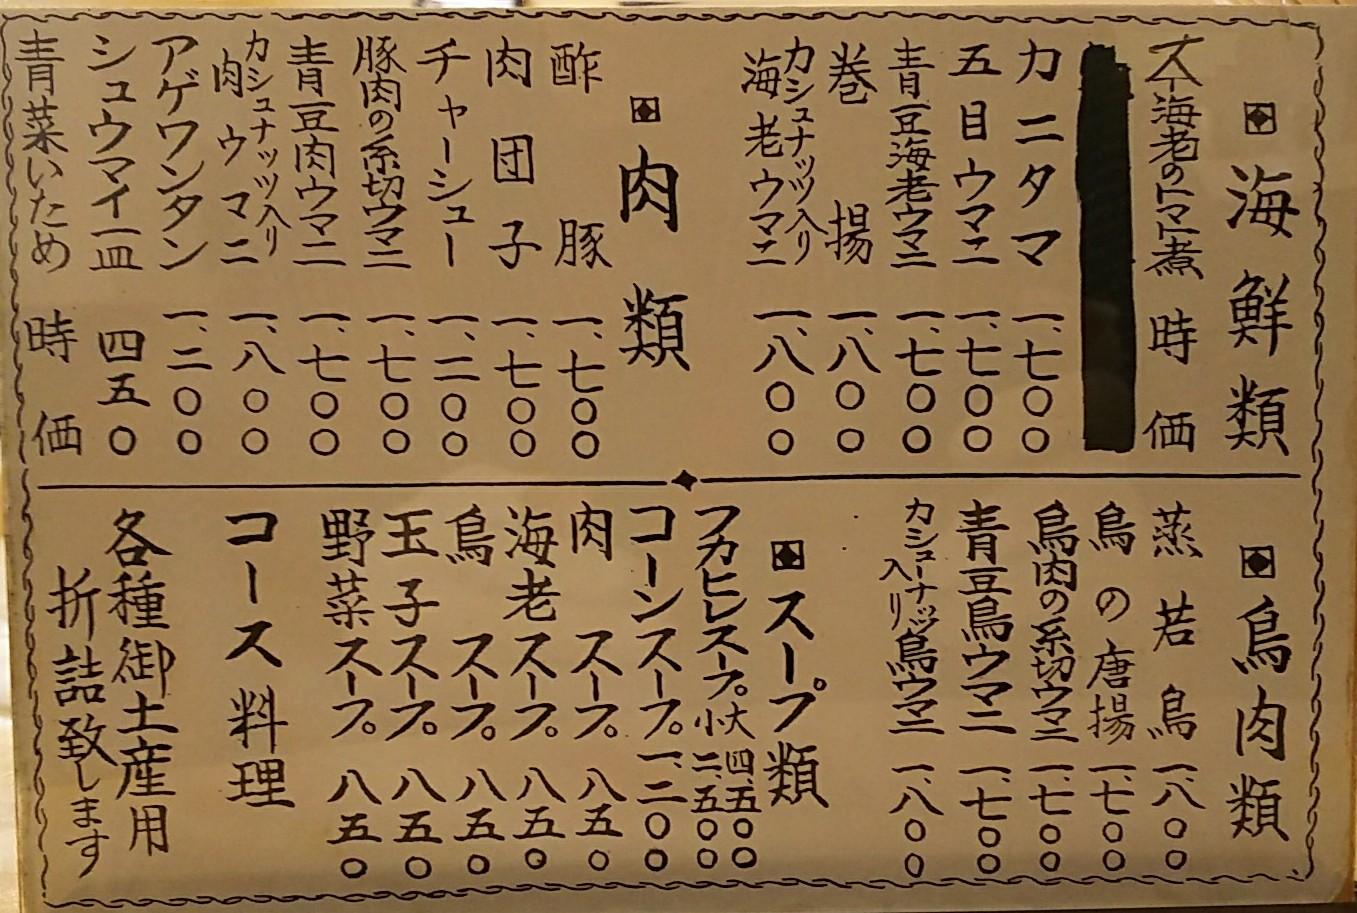 海鮮類
大海老のトマト煮 時価
カニタマ 一、七〇〇
五目ウマニ 一、七〇〇
青豆海老ウマニ 一、七〇〇
巻揚 一、八〇〇
カシュナッツ入り
海老ウマニ 一、八〇〇
肉類
酢豚 一、七〇〇
肉団子 一、七〇〇
チャーシュー 一、二〇〇
豚肉の糸切ウマニ 一、七〇〇
青豆肉ウマニ 一、七〇〇
カシュナッツ入り
肉ウマニ 一、八〇〇
アゲワンタン 一、二〇〇
シュウマイ一皿 四五〇
青菜いため 時価
鳥肉類
蒸若鳥 一、八〇〇
鳥の唐揚 一、七〇〇
鳥肉の糸切ウマニ 一、七〇〇
青豆鳥ウマニ 一、七〇〇
カシューナッツ入り鳥ウマニ 一、八〇〇
スープ類
フカヒレスープ 大 四五〇〇
小 二、五〇〇
コーンスープ 一、二〇〇
肉スープ 八五〇
海老スープ 八五〇
鳥スープ 八五〇
玉子スープ 八五〇
野菜スープ 八五〇
コース料理
各種御土産用
折詰致します